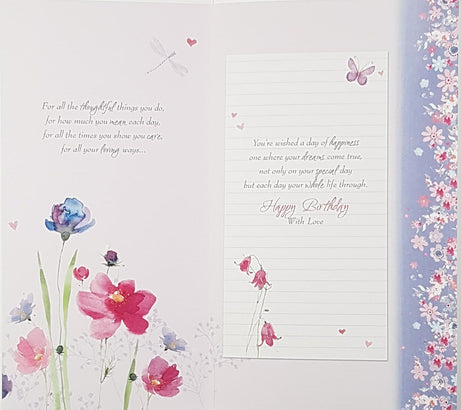 For all the thoughtful things you do,
for how much you mean each day,
for all the times you show you care,
for all your loving ways...
You're wished a day of happiness
one where your dreams come true,
not only on your special day
but each day your whole life through.
Happy Birthday
With Love